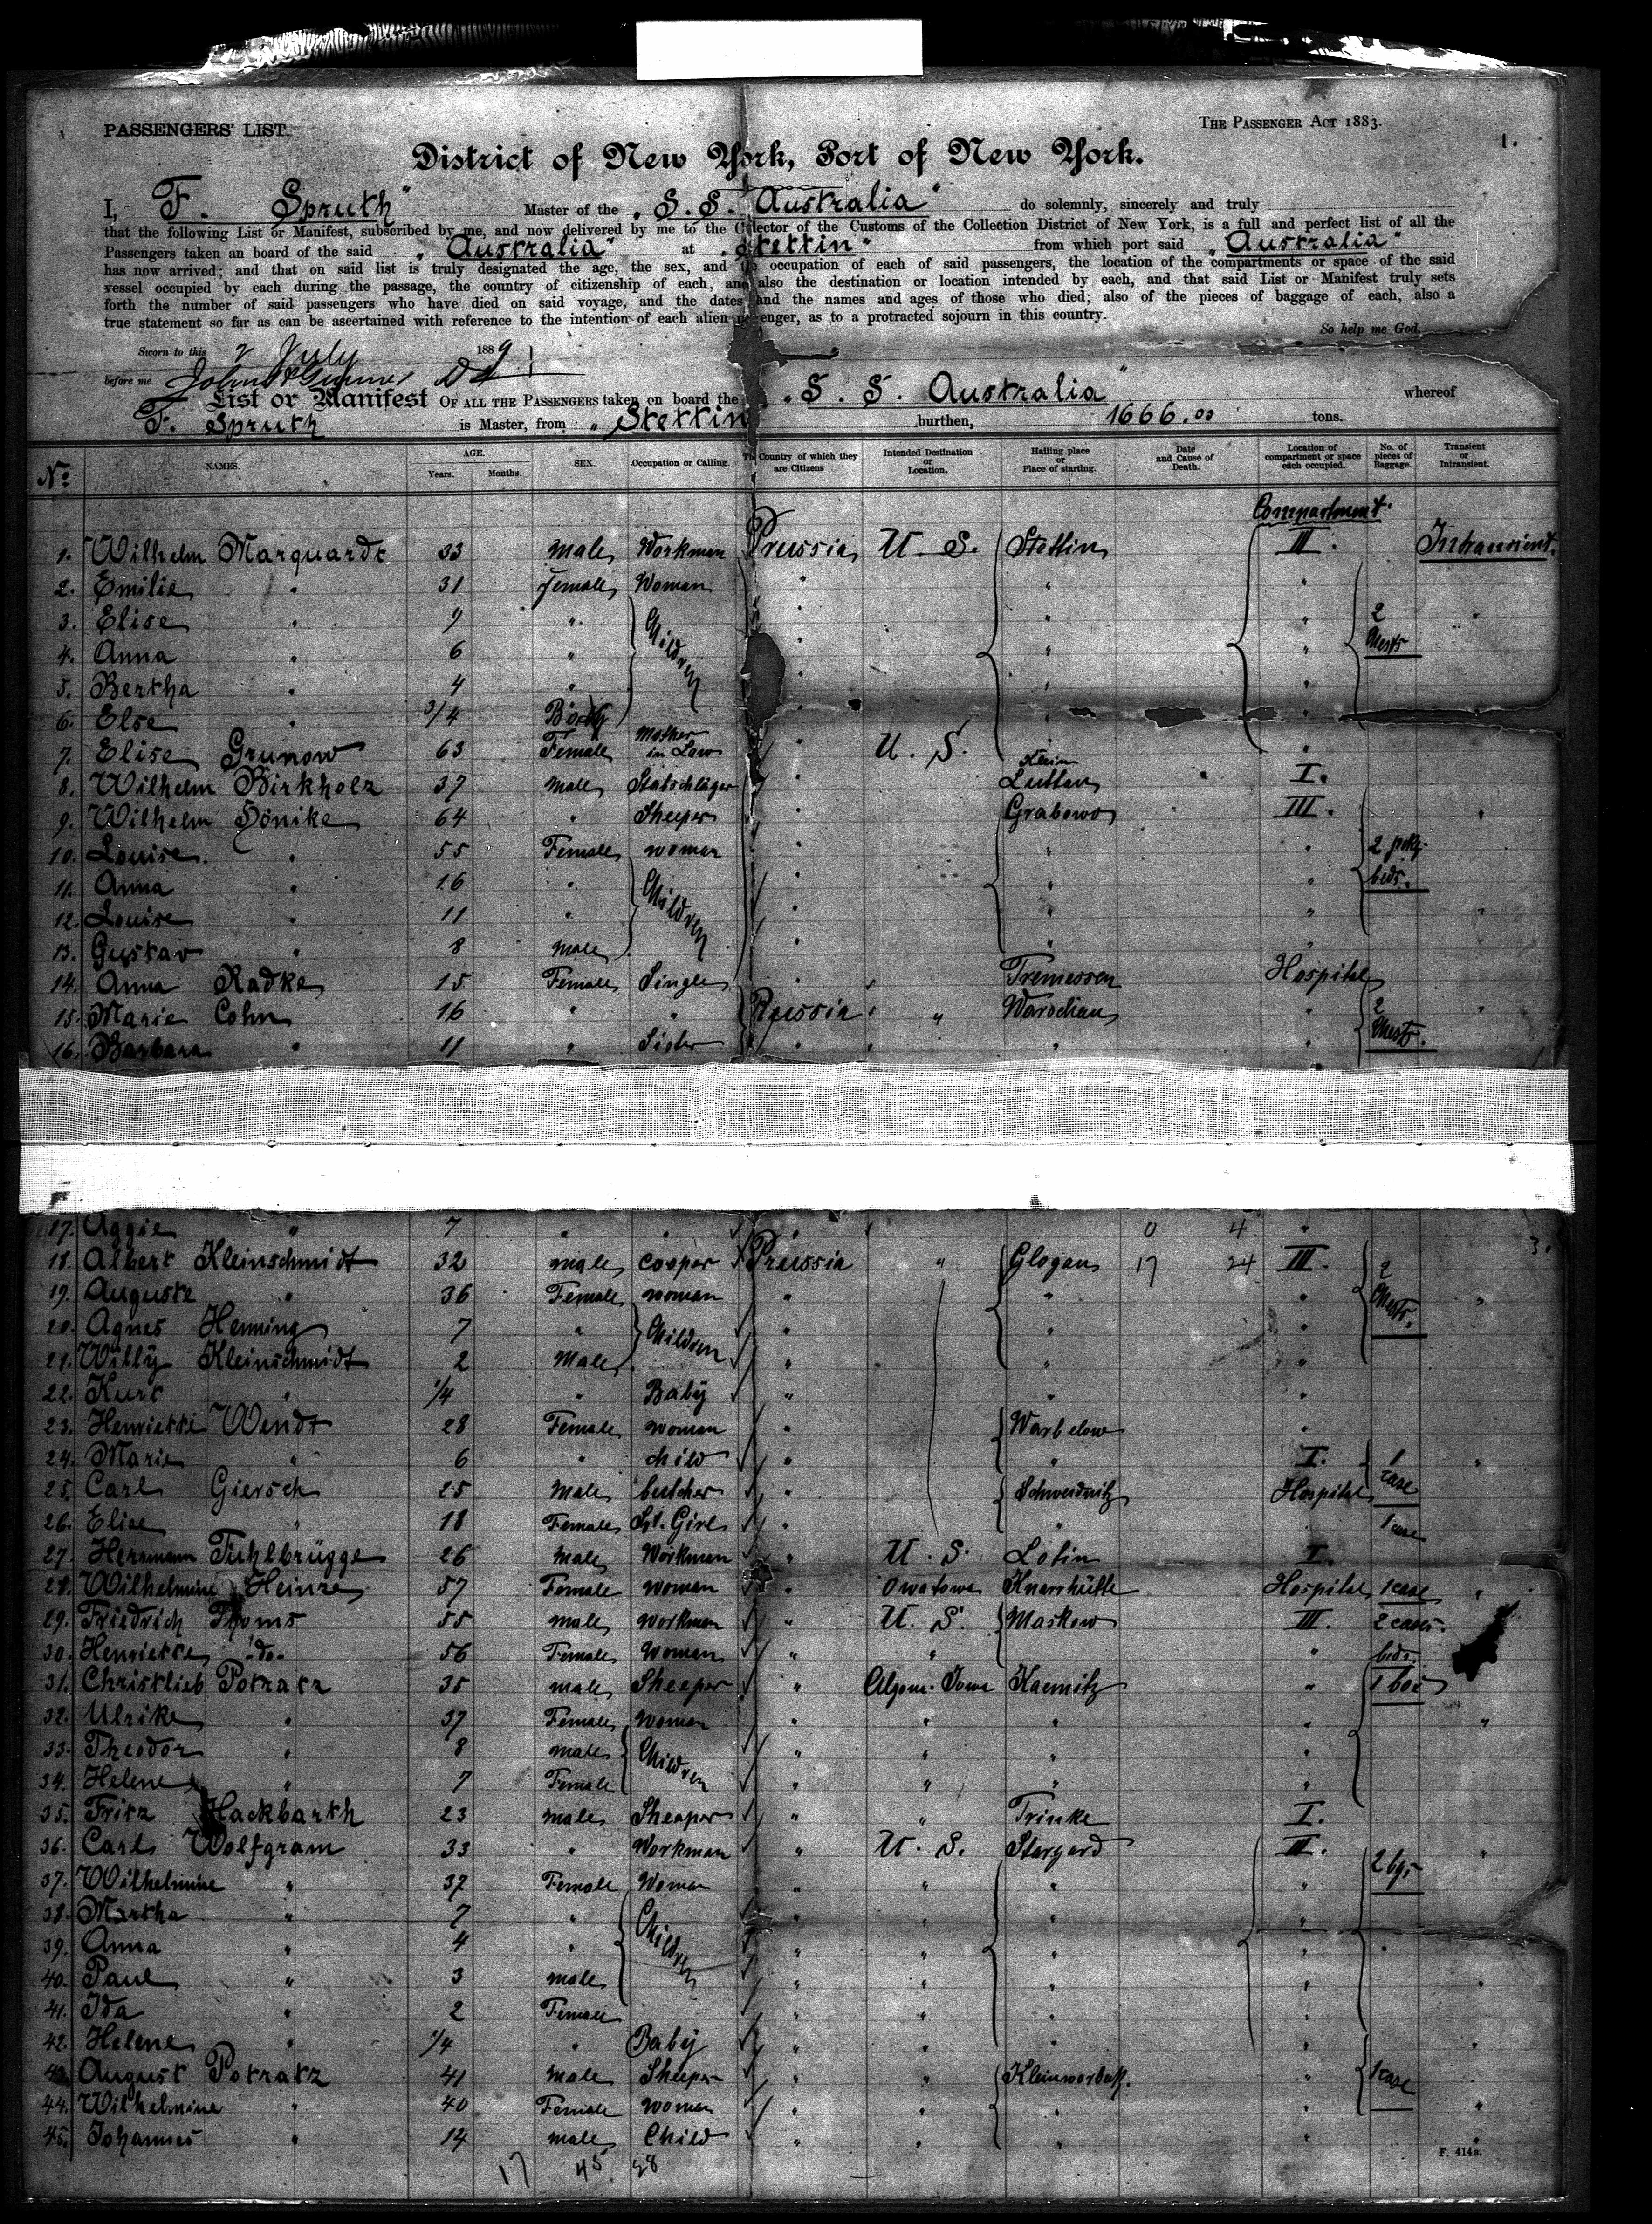 PASSENGERS' LIST.
THE PASSENGER ACT 1883.
1.
District of New York, Port of New York.
I, F. Spruth Master of the „S.S. Australia" do solemnly, sincerely and truly
that the following List or Manifest, subscribed by me, and now delivered by me to the Collector of the Customs of the Collection District of New York, is a full and perfect list of all the
Passengers taken an board of the said „Australia" at „Stettin" from which port said „Australia"
has now arrived; and that on said list is truly designated the age, the sex, and the occupation of each of said passengers, the location of the compartments or space of the said
vessel occupied by each during the passage, the country of citizenship of each, and also the destination or location intended by each, and that said List or Manifest truly sets
forth the number of said passengers who have died on said voyage, and the dates and the names and ages of those who died; also of the pieces of baggage of each, also a
true statement so far as can be ascertained with reference to the intention of each alien passenger, as to a protracted sojourn in this country.
So help me God.
Sworn to this 2 July 1889
before me
List or Manifest OF ALL THE PASSENGERS taken on board the „S. S. Australia" whereof
F. Spruth is Master, from „Stettin burthen, 1666.00 tons.
No. NAMES. AGE. Years. Months. SEX. Occupation or Calling. The Country of which they are Citizens Intended Destination or Location. Hailing place or Place of starting. Date and Cause of Death. Location of compartment or space each occupied. No. of pieces of Baggage. Transient or Intransient.
Compartment.
1. Wilhelm Marquardt 33 male Workman Prussia U. S. Stettin III. Intransient.
2. Emilie " 31 female Woman " " "
3. Elise " 9 " Children " " " 2 Chests "
4. Anna " 6 " " " "
5. Bertha " 4 " " " "
6. Else " 3/4 Baby " " "
7. Elise Grunow 63 Female Mother in Law " U. S. "
8. Wilhelm Birkholz 37 male Stabschläger " Klein Lutten I.
9. Wilhelm Hönike 64 " Sheeper " Grabowo III. "
10. Louise " 55 Female woman " " " 2 pckg. beds.
11. Anna " 16 " Children " " "
12. Louise " 11 " " " " "
13. Gustav " 8 male " " "
14. Anna Radke 15 Female Single " " Tremessen Hospital
15. Marie Cohn 16 " " Russia " Warschau " 2 Chests. "
16. Barbara " 11 " Sister " " " "
17. Aggie " 7 " " " 0 4 "
18. Albert Kleinschmidt 32 male cooper Prussia " Glogau 17 24 III. 2 Chests. 3.
19. Auguste " 36 Female woman " " " "
20. Agnes Henning 7 " Children " " "
21. Willy Kleinschmidt 2 Male " " "
22. Kurt " 1/4 " Baby " " "
23. Henriette Wendt 28 Female woman " Warbelow "
24. Marie " 6 " child " " I. 1 case "
25. Carl Giersch 25 Male butcher " Schweidnitz Hospital
26. Elise " 18 Female St. Girl " " 1 case
27. Hermann Fuhlbrügge 26 Male Workman " U. S. Lotin I.
28. Wilhelmine Heinze 57 Female woman " Owatowa Knarrhütte Hospital 1 case "
29. Friedrich Thoms 55 male workman " U. S. Maskow III. 2 cases.
30. Henriette -do- 56 Female Woman " " " beds.
31. Christlieb Potratz 35 male Sheeper " Algona. Iowa Kaemitz " 1 box
32. Ulrike " 37 Female woman " " " " "
33. Theodor " 8 male Children " " " "
34. Helene " 7 Female " " " "
35. Fritz Hackbarth 23 male Sheaper " " Trinke I.
36. Carl Wolfgram 33 " Workman " U. S. Stargard III. "
37. Wilhelmine " 37 Female Woman " " " " 2 bgs
38. Martha " 7 " Children " " " "
39. Anna " 4 " " " " "
40. Paul " 3 male " " " " "
41. Ida " 2 Female " " " "
42. Helene " 1/4 " Baby " " " " "
43. August Potratz 41 Male Sheeper " " " 1 case
44. Wilhelmine " 40 Female woman " " " " "
45. Johannes " 14 male Child " " " " "
F. 414a.
17 45 28